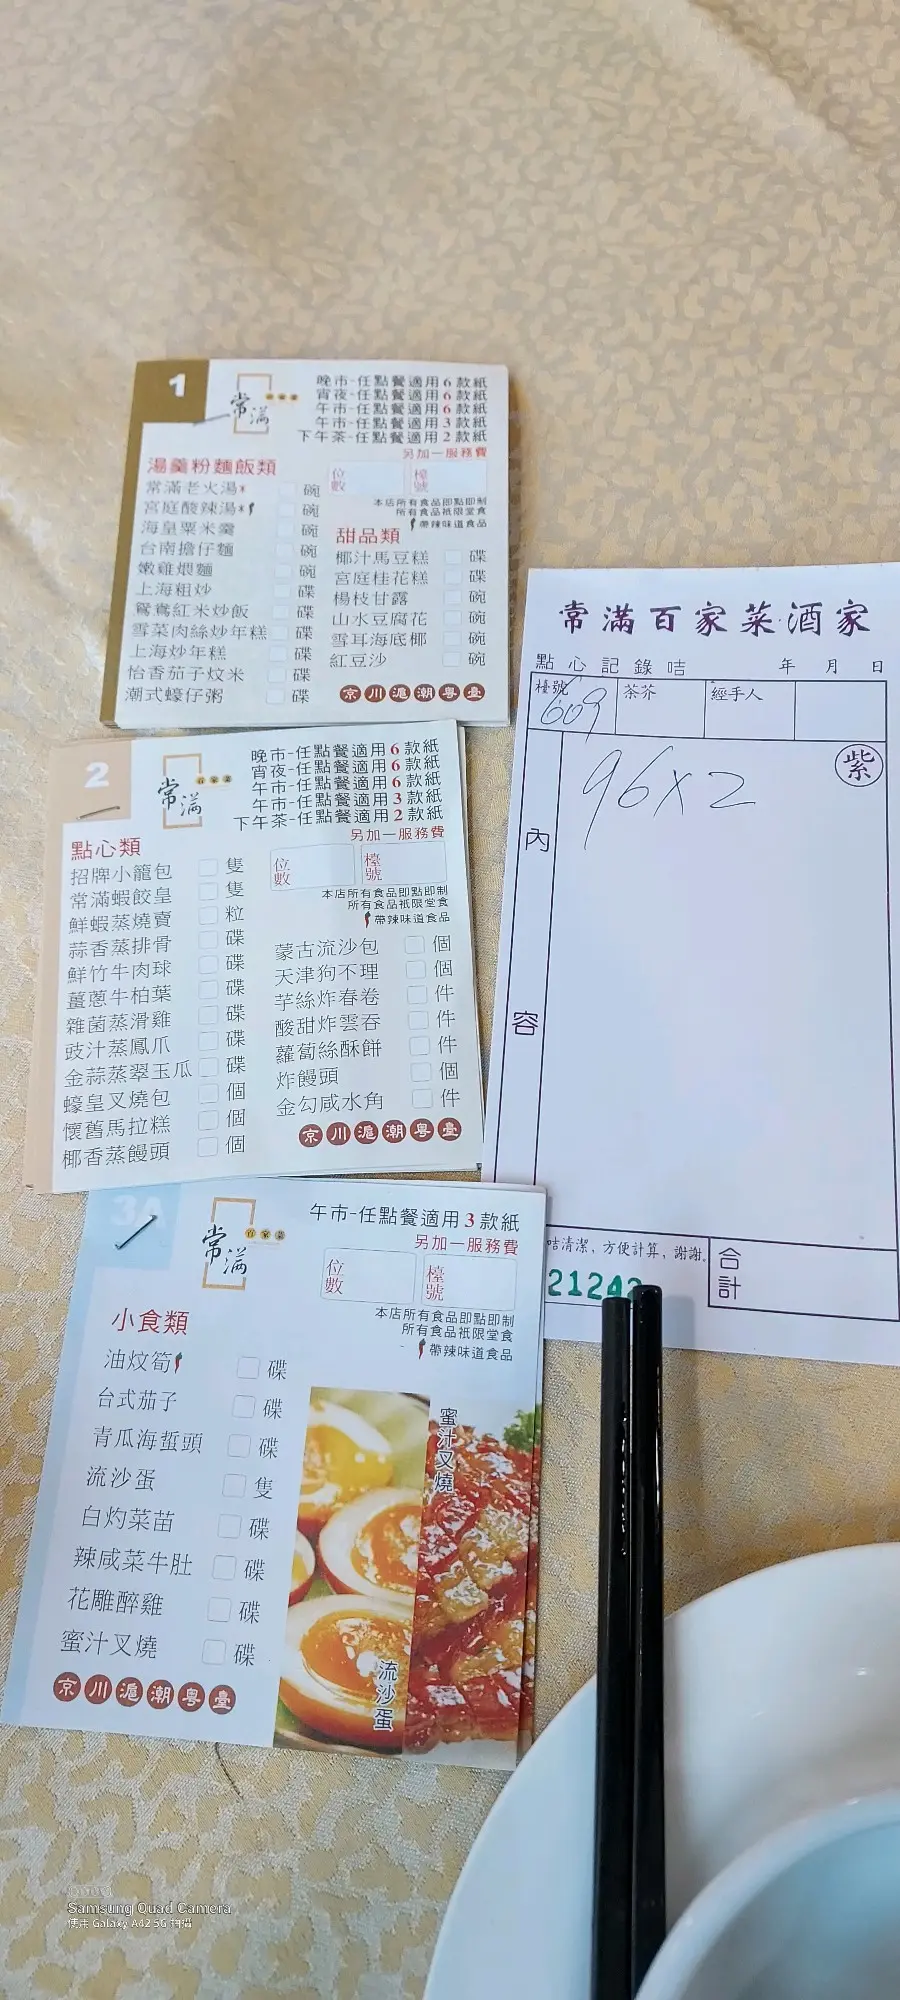 1
常滿
百家菜
晚市-任點餐適用6款紙
宵夜-任點餐適用6款紙
午市-任點餐適用6款紙
午市-任點餐適用3款紙
下午茶-任點餐適用2款紙
另加一服務費
位數
檯號
本店所有食品即點即制
所有食品祇限堂食
帶辣味道食品
湯羹粉麵飯類
常滿老火湯* 碗
宮庭酸辣湯* 碗
海皇粟米羹 碗
台南擔仔麵 碗
嫩雞煨麵 碗
上海粗炒 碟
鴛鴦紅米炒飯 碟
雪菜肉絲炒年糕 碟
上海炒年糕 碟
怡香茄子炆米 碟
潮式蠔仔粥 碟
甜品類
椰汁馬豆糕 碟
宮庭桂花糕 碟
楊枝甘露 碗
山水豆腐花 碗
雪耳海底椰 碗
紅豆沙 碗
京川滬潮粵臺
2
常滿
百家菜
晚市-任點餐適用6款紙
宵夜-任點餐適用6款紙
午市-任點餐適用6款紙
午市-任點餐適用3款紙
下午茶-任點餐適用2款紙
另加一服務費
位數
檯號
本店所有食品即點即制
所有食品祇限堂食
帶辣味道食品
點心類
招牌小籠包 隻
常滿蝦餃皇 隻
鮮蝦蒸燒賣 粒
蒜香蒸排骨 碟
鮮竹牛肉球 碟
薑蔥牛柏葉 碟
雜菌蒸滑雞 碟
豉汁蒸鳳爪 碟
金蒜蒸翠玉瓜 碟
蠔皇叉燒包 個
懷舊馬拉糕 個
椰香蒸饅頭 個
蒙古流沙包 個
天津狗不理 個
芋絲炸春卷 件
酸甜炸雲吞 件
蘿蔔絲酥餅 件
炸饅頭 個
金勾咸水角 件
京川滬潮粵臺
3A
常滿
百家菜
午市-任點餐適用3款紙
另加一服務費
位數
檯號
本店所有食品即點即制
所有食品祇限堂食
帶辣味道食品
小食類
油炆筍 碟
台式茄子 碟
青瓜海蜇頭 碟
流沙蛋 隻
白灼菜苗 碟
辣咸菜牛肚 碟
花雕醉雞 碟
蜜汁叉燒 碟
京川滬潮粵臺
蜜汁叉燒
流沙蛋
常滿百家菜酒家
點心記錄咭 年 月 日
檯號 609 茶芥 經手人
紫
96x2
內容
咭清潔，方便計算，謝謝。
合計
21242
Samsung Quad Camera
使用 Galaxy A42 5G 拍攝